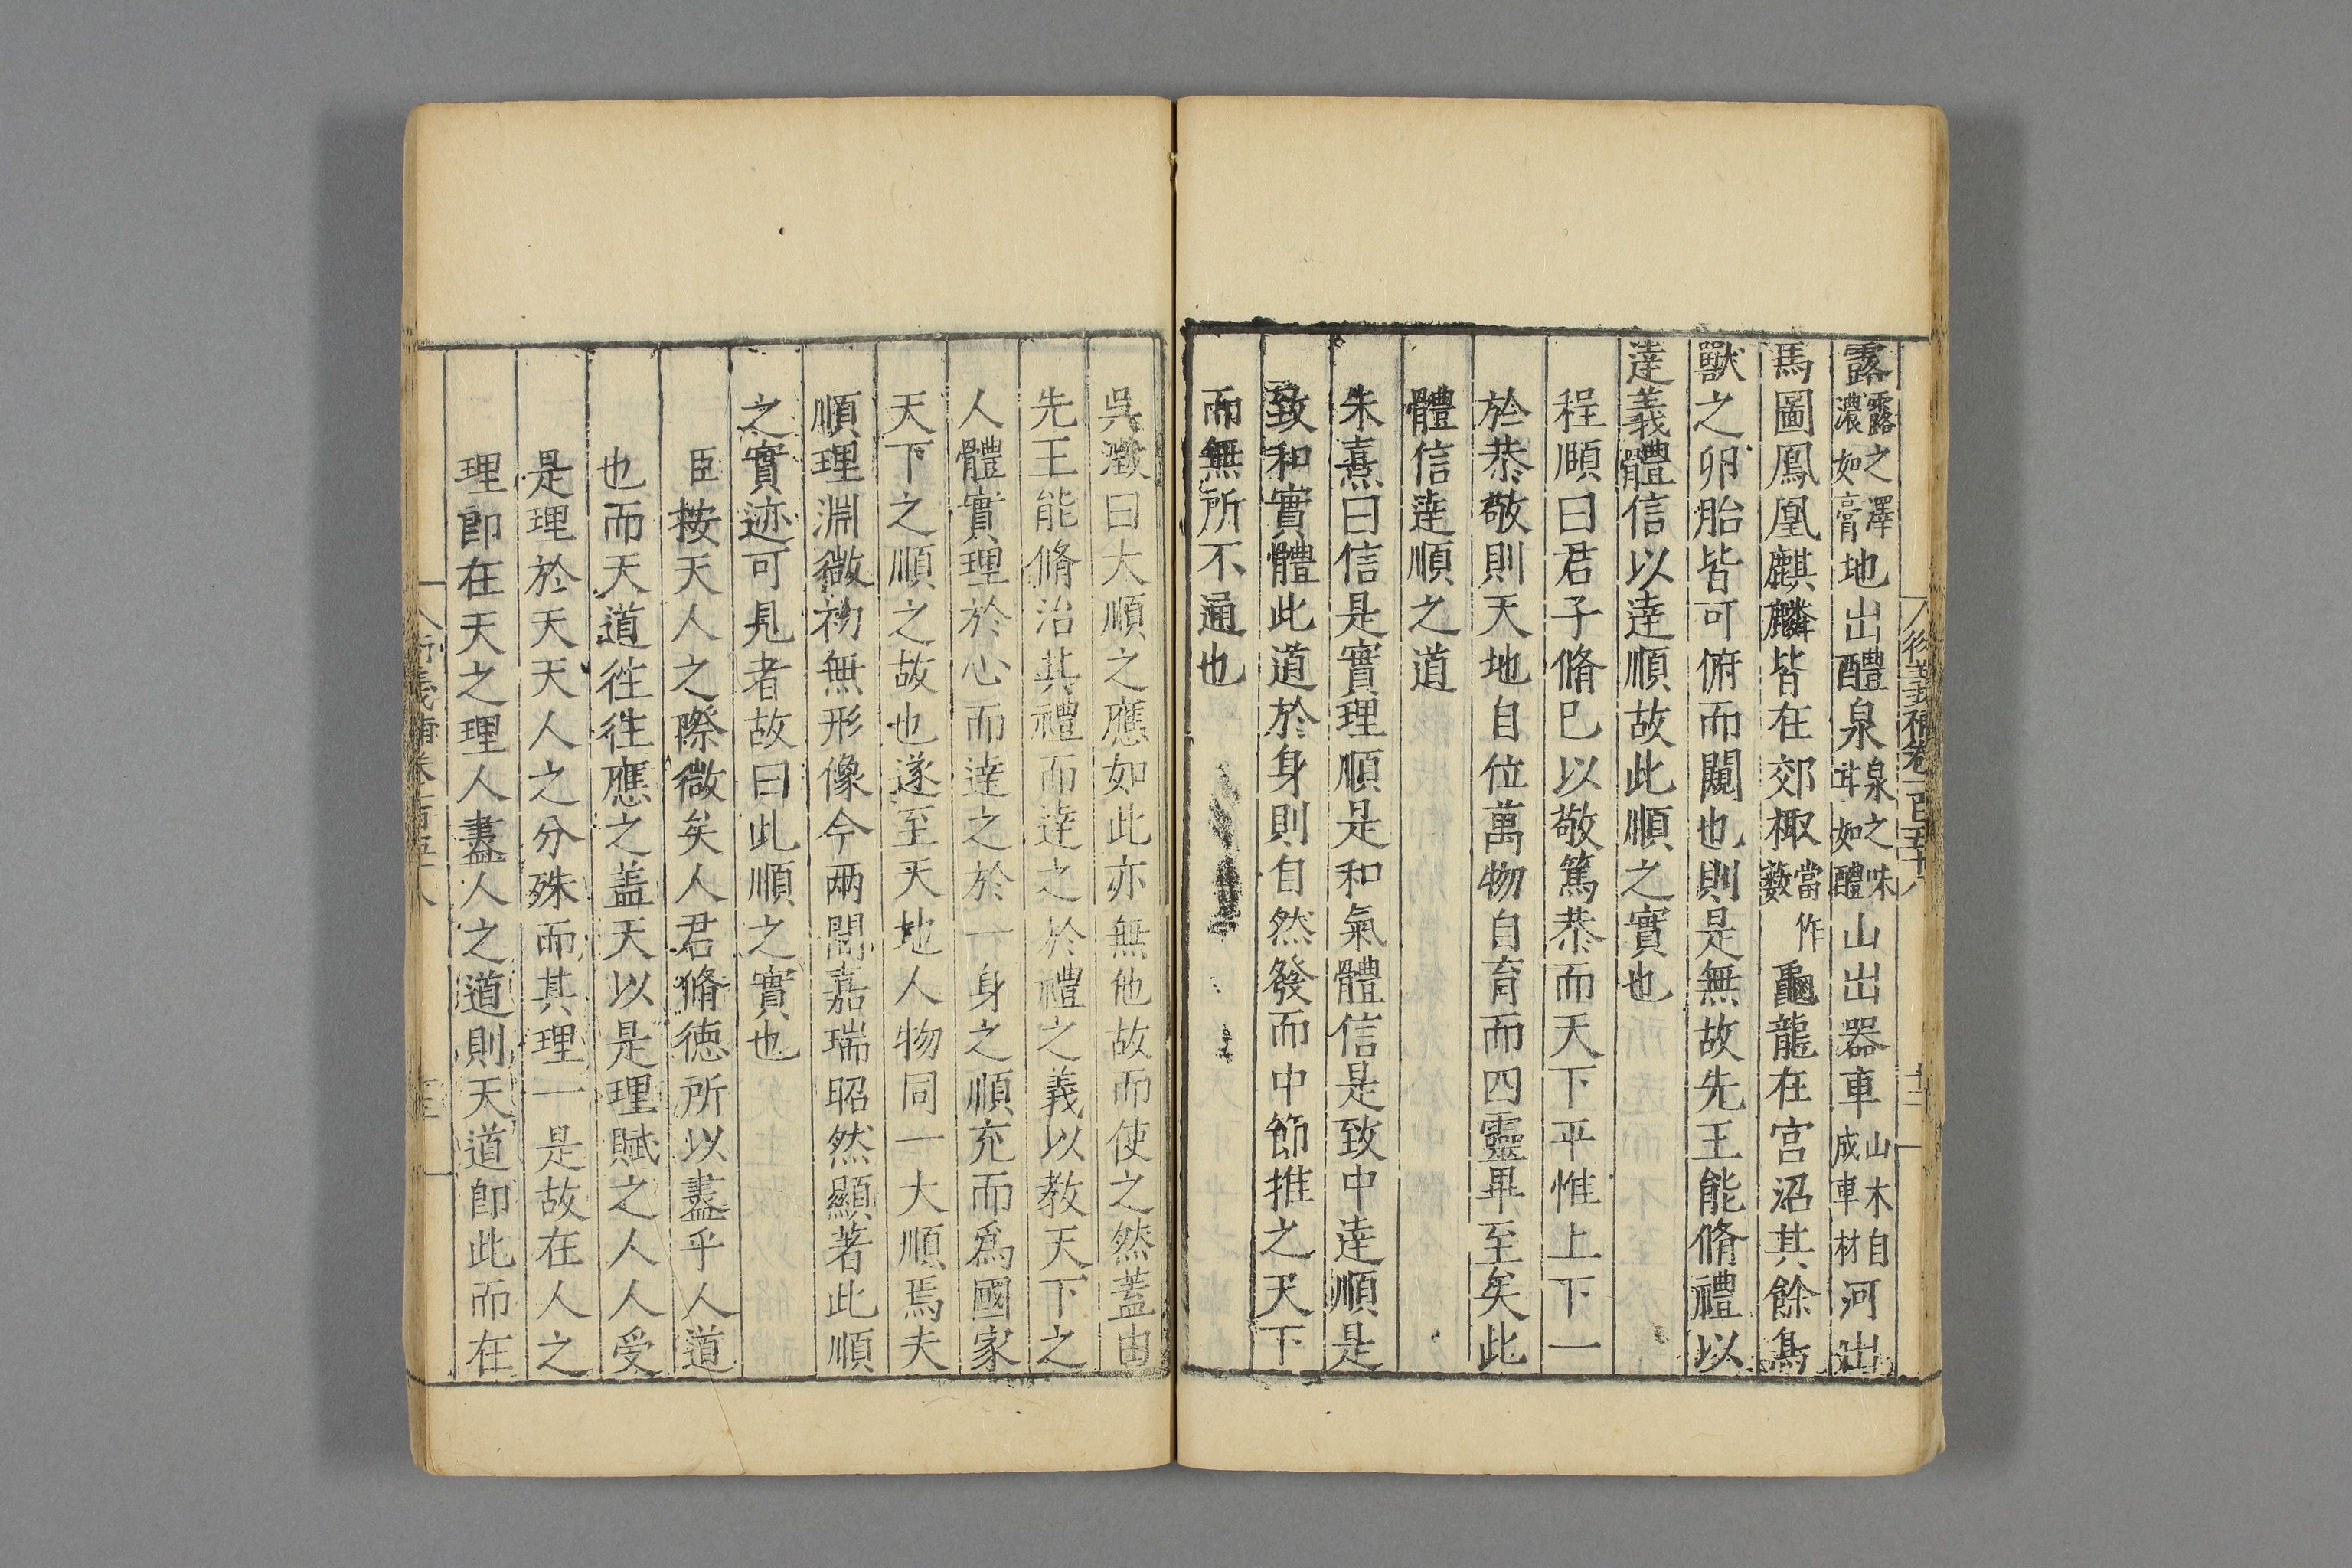 露露之澤濃如膏地出醴泉泉之味甘如醴山出器車山木自成車材河出
馬圖鳳凰麒麟皆在郊棷當作藪龜龍在宮沼其餘鳥
獸之卵胎皆可俯而闚也則是無故先王能脩禮以
逹義體信以逹順故此順之實也
程頤曰君子脩巳以敬篤恭而天下平惟上下一
於恭敬則天地自位萬物自育而四靈畢至矣此
體信逹順之道
朱熹曰信是實理順是和氣體信是致中逹順是
致和實體此道於身則自然發而中節推之天下
而無所不通也
吳澂曰大順之應如此亦無他故而使之然蓋由
先王能脩治其禮而逹之於禮之義以教天下之
人體實理於心而逹之於一身之順充而爲國家
天下之順之故也遂至天地人物同一大順焉夫
順理淵微初無形像今兩間嘉瑞昭然顯著此順
之實迹可見者故曰此順之實也
臣按天人之際微矣人君脩徳所以盡乎人道
也而天道徃徃應之盖天以是理賦之人人受
是理於天天人之分殊而其理一是故在人之
理即在天之理人盡人之道則天道即此而在